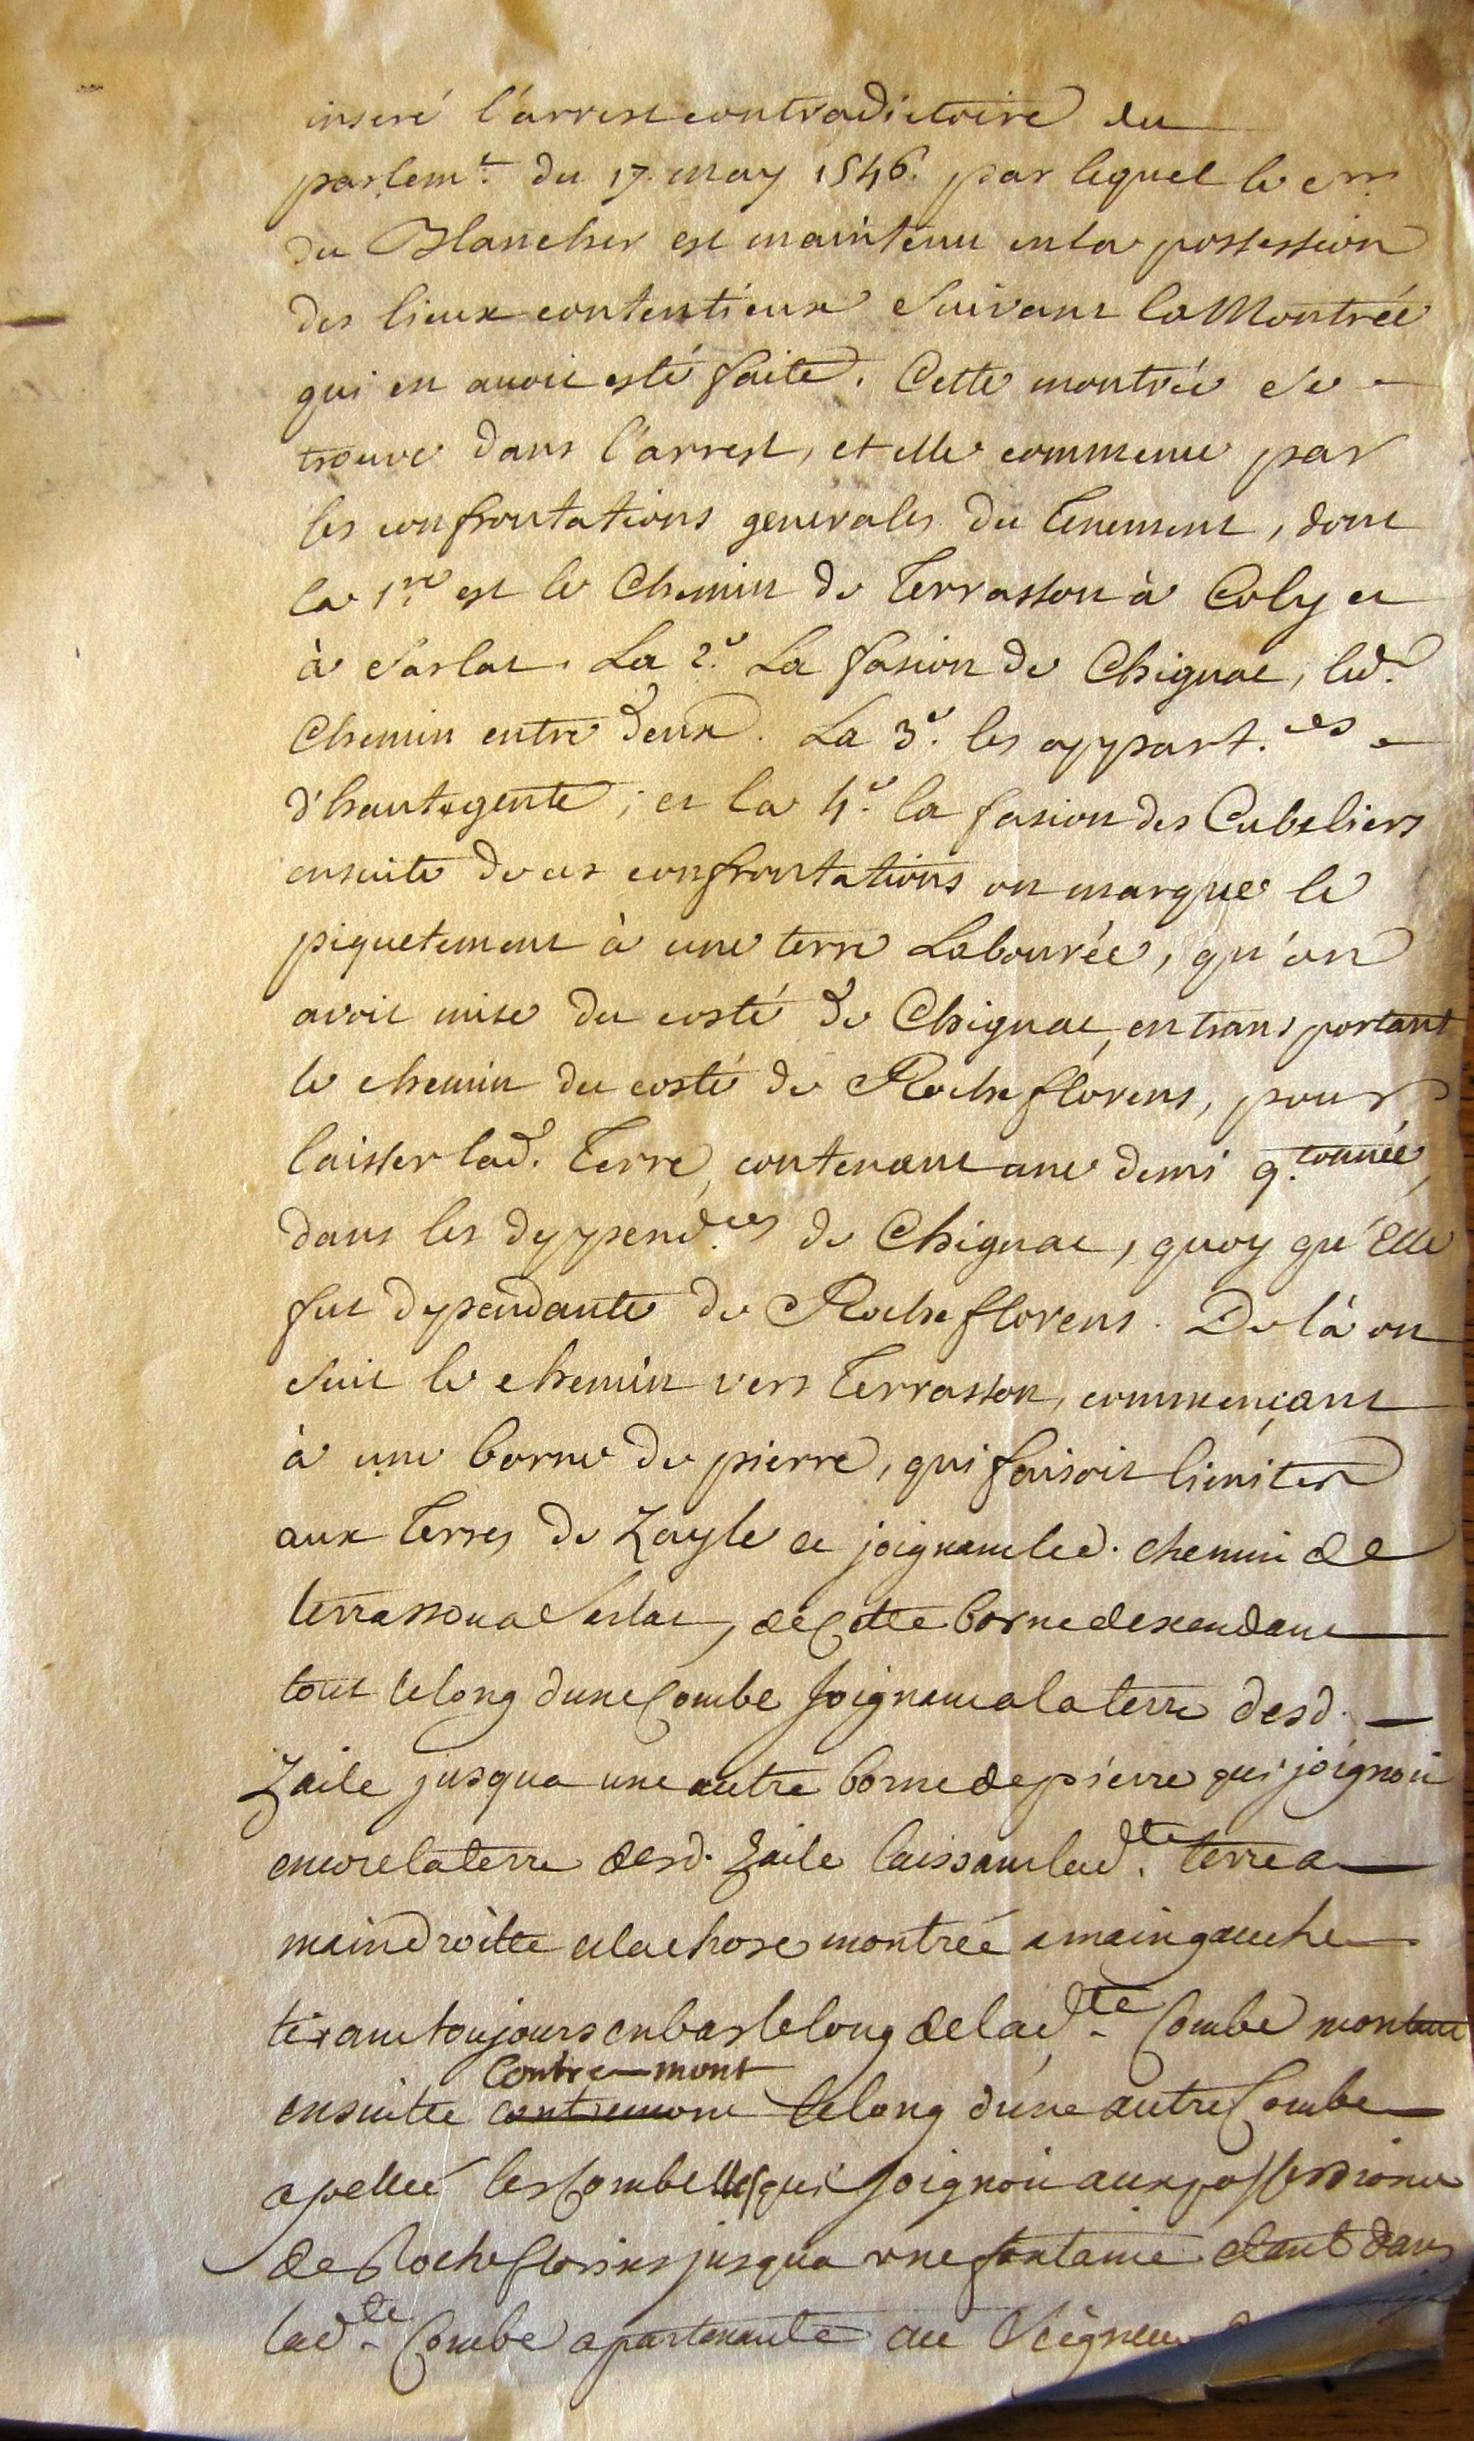 inseré l'arrest contradictoire du
parlem.t du 17. may 1546. par lequel le
du Blancher est maintenu en la possession
des lieux contentieux suivant la Montrée
qui en avoit esté faite. Cette montrée se
trouve dans l'arrest, et elle commence par
les confrontations generales du tenement, dont
la 1.re est le Chemin de Terrasson à Coly et
à Sarlat. La 2.e La fasion de Chignac, led.
Chemin entre deux. La 3.e les appart.ces
d'hautegente; et la 4.e la fasion des Cubeliers
ensuite de ces confrontations on marque le
piquetement à une terre Labourée, qu'on
avoit mise du costé de Chignac, en transportant
le chemin du costé de Rocheflorens, pour
laisser lad. Terre, contenant une demi q.tonnée,
dans les deppend.ces de Chignac, quoy qu'elle
fut dependante de Rocheflorens. De là on
suit le chemin vers Terrasson, commençant
à une borne de pierre, qui faisoit limiter
aux Terres de Zayle et joignant led. chemin de
terrasson a Sarlat, de Cette borne descendant
tout le long dune Combe Joignant a la terre desd.
Zaile jusqua une autre borne de pierre qui joignoit
encore la terre desd. Zaile laissant lad.te terre a
main droitte et la chose montrée a main gauche
tirant toujours en bas le long de lad.te Combe montant
Contre-mont
ensuitte contremont le long dúne autre Combe
apellée les Combelles qui Joignoit aux possessions
de Rocheflorens jusqua une fontaine etant dans
lad.te Combe apartenante au Seigneur